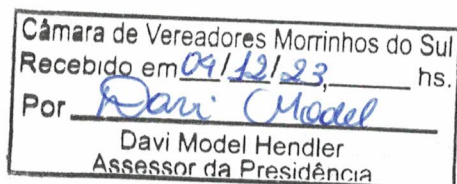 Câmara de Vereadores Morrinhos do Sul
Recebido em 04/12/23, ______ hs.
Por Davi Model
Davi Model Hendler
Assessor da Presidência